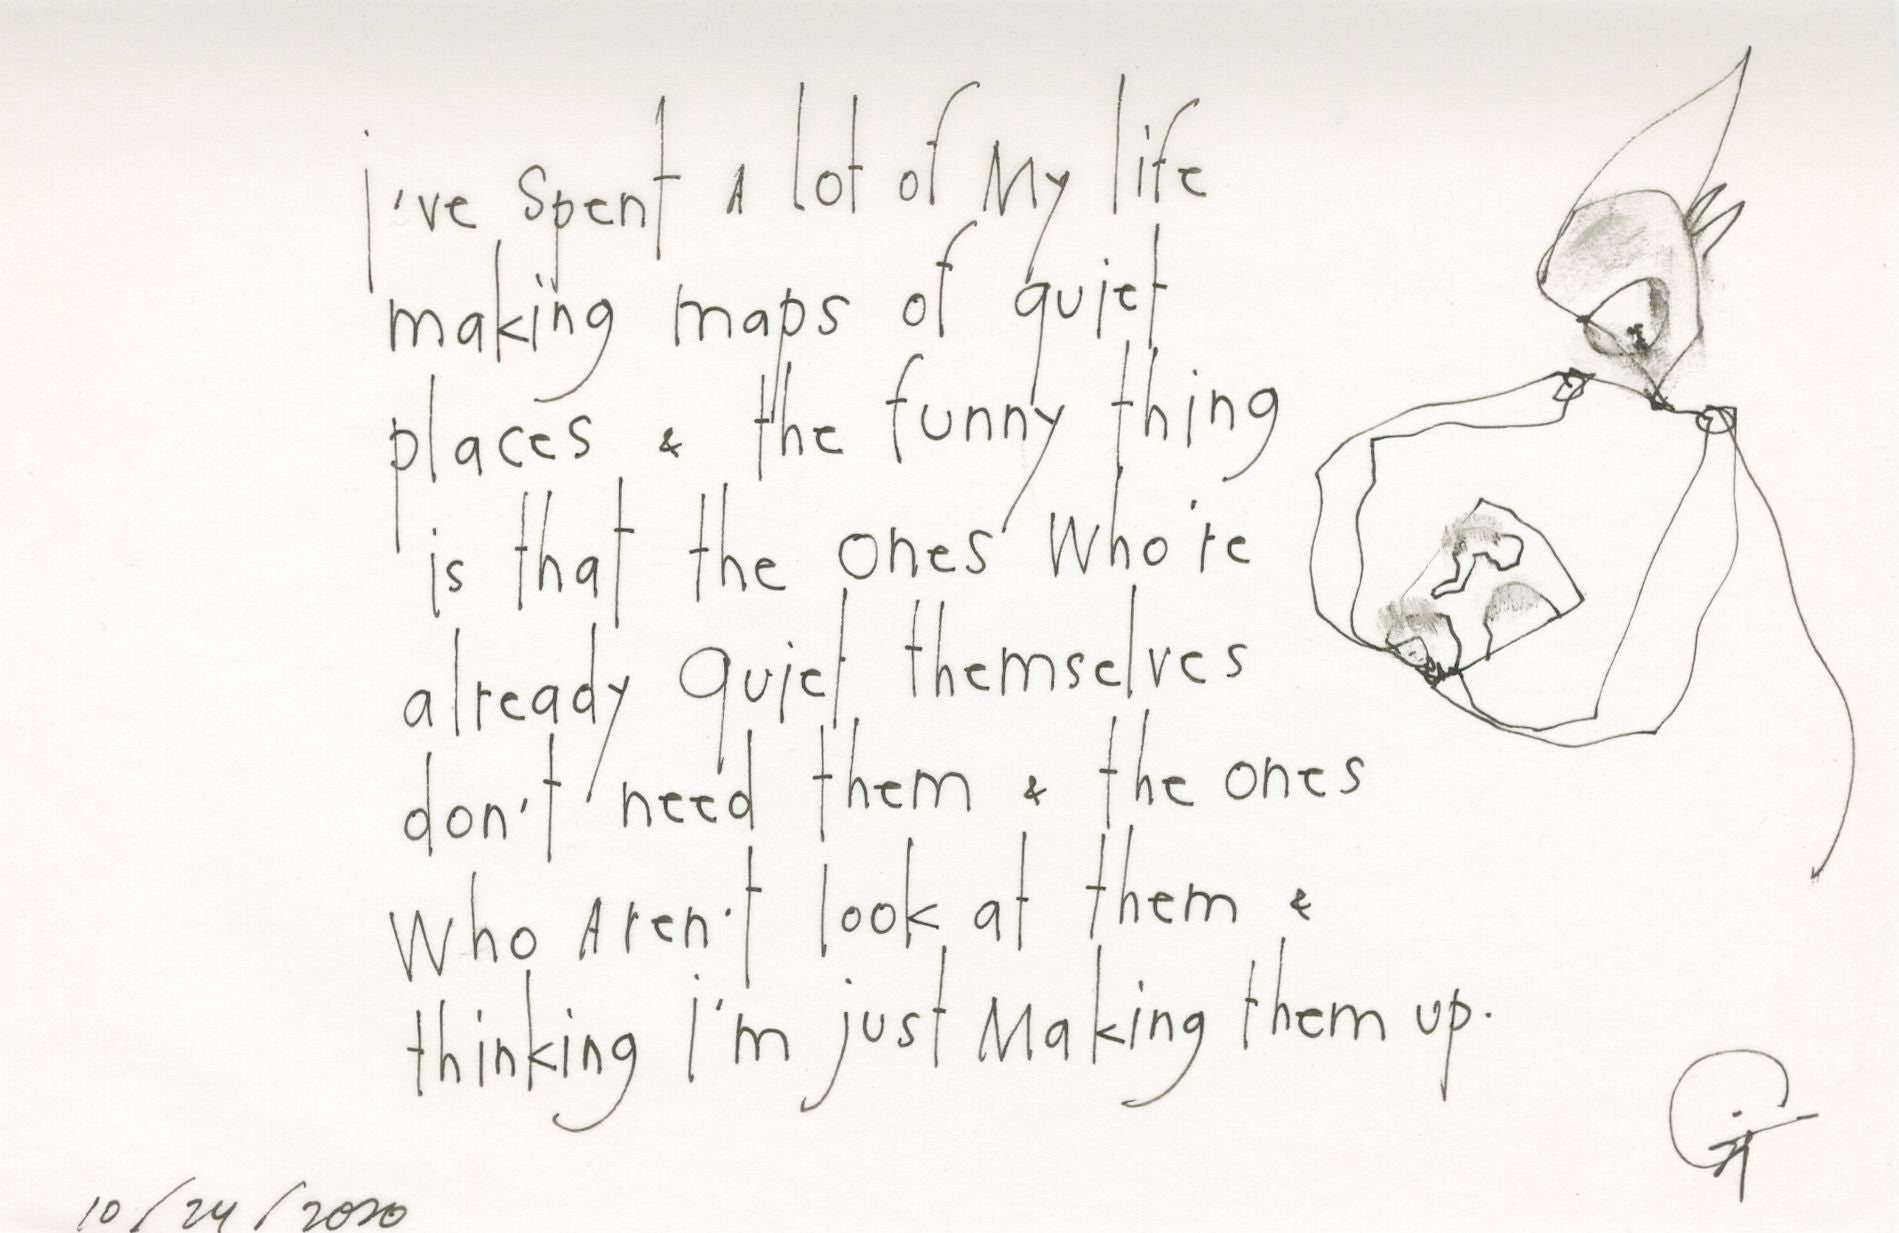 i've spent A lot of My life
making maps of quiet
places & the funny thing
is that the ones who're
already quiet themselves
don't need them & the ones
who Aren't look at them &
thinking i'm just Making them up.
10/24/2020